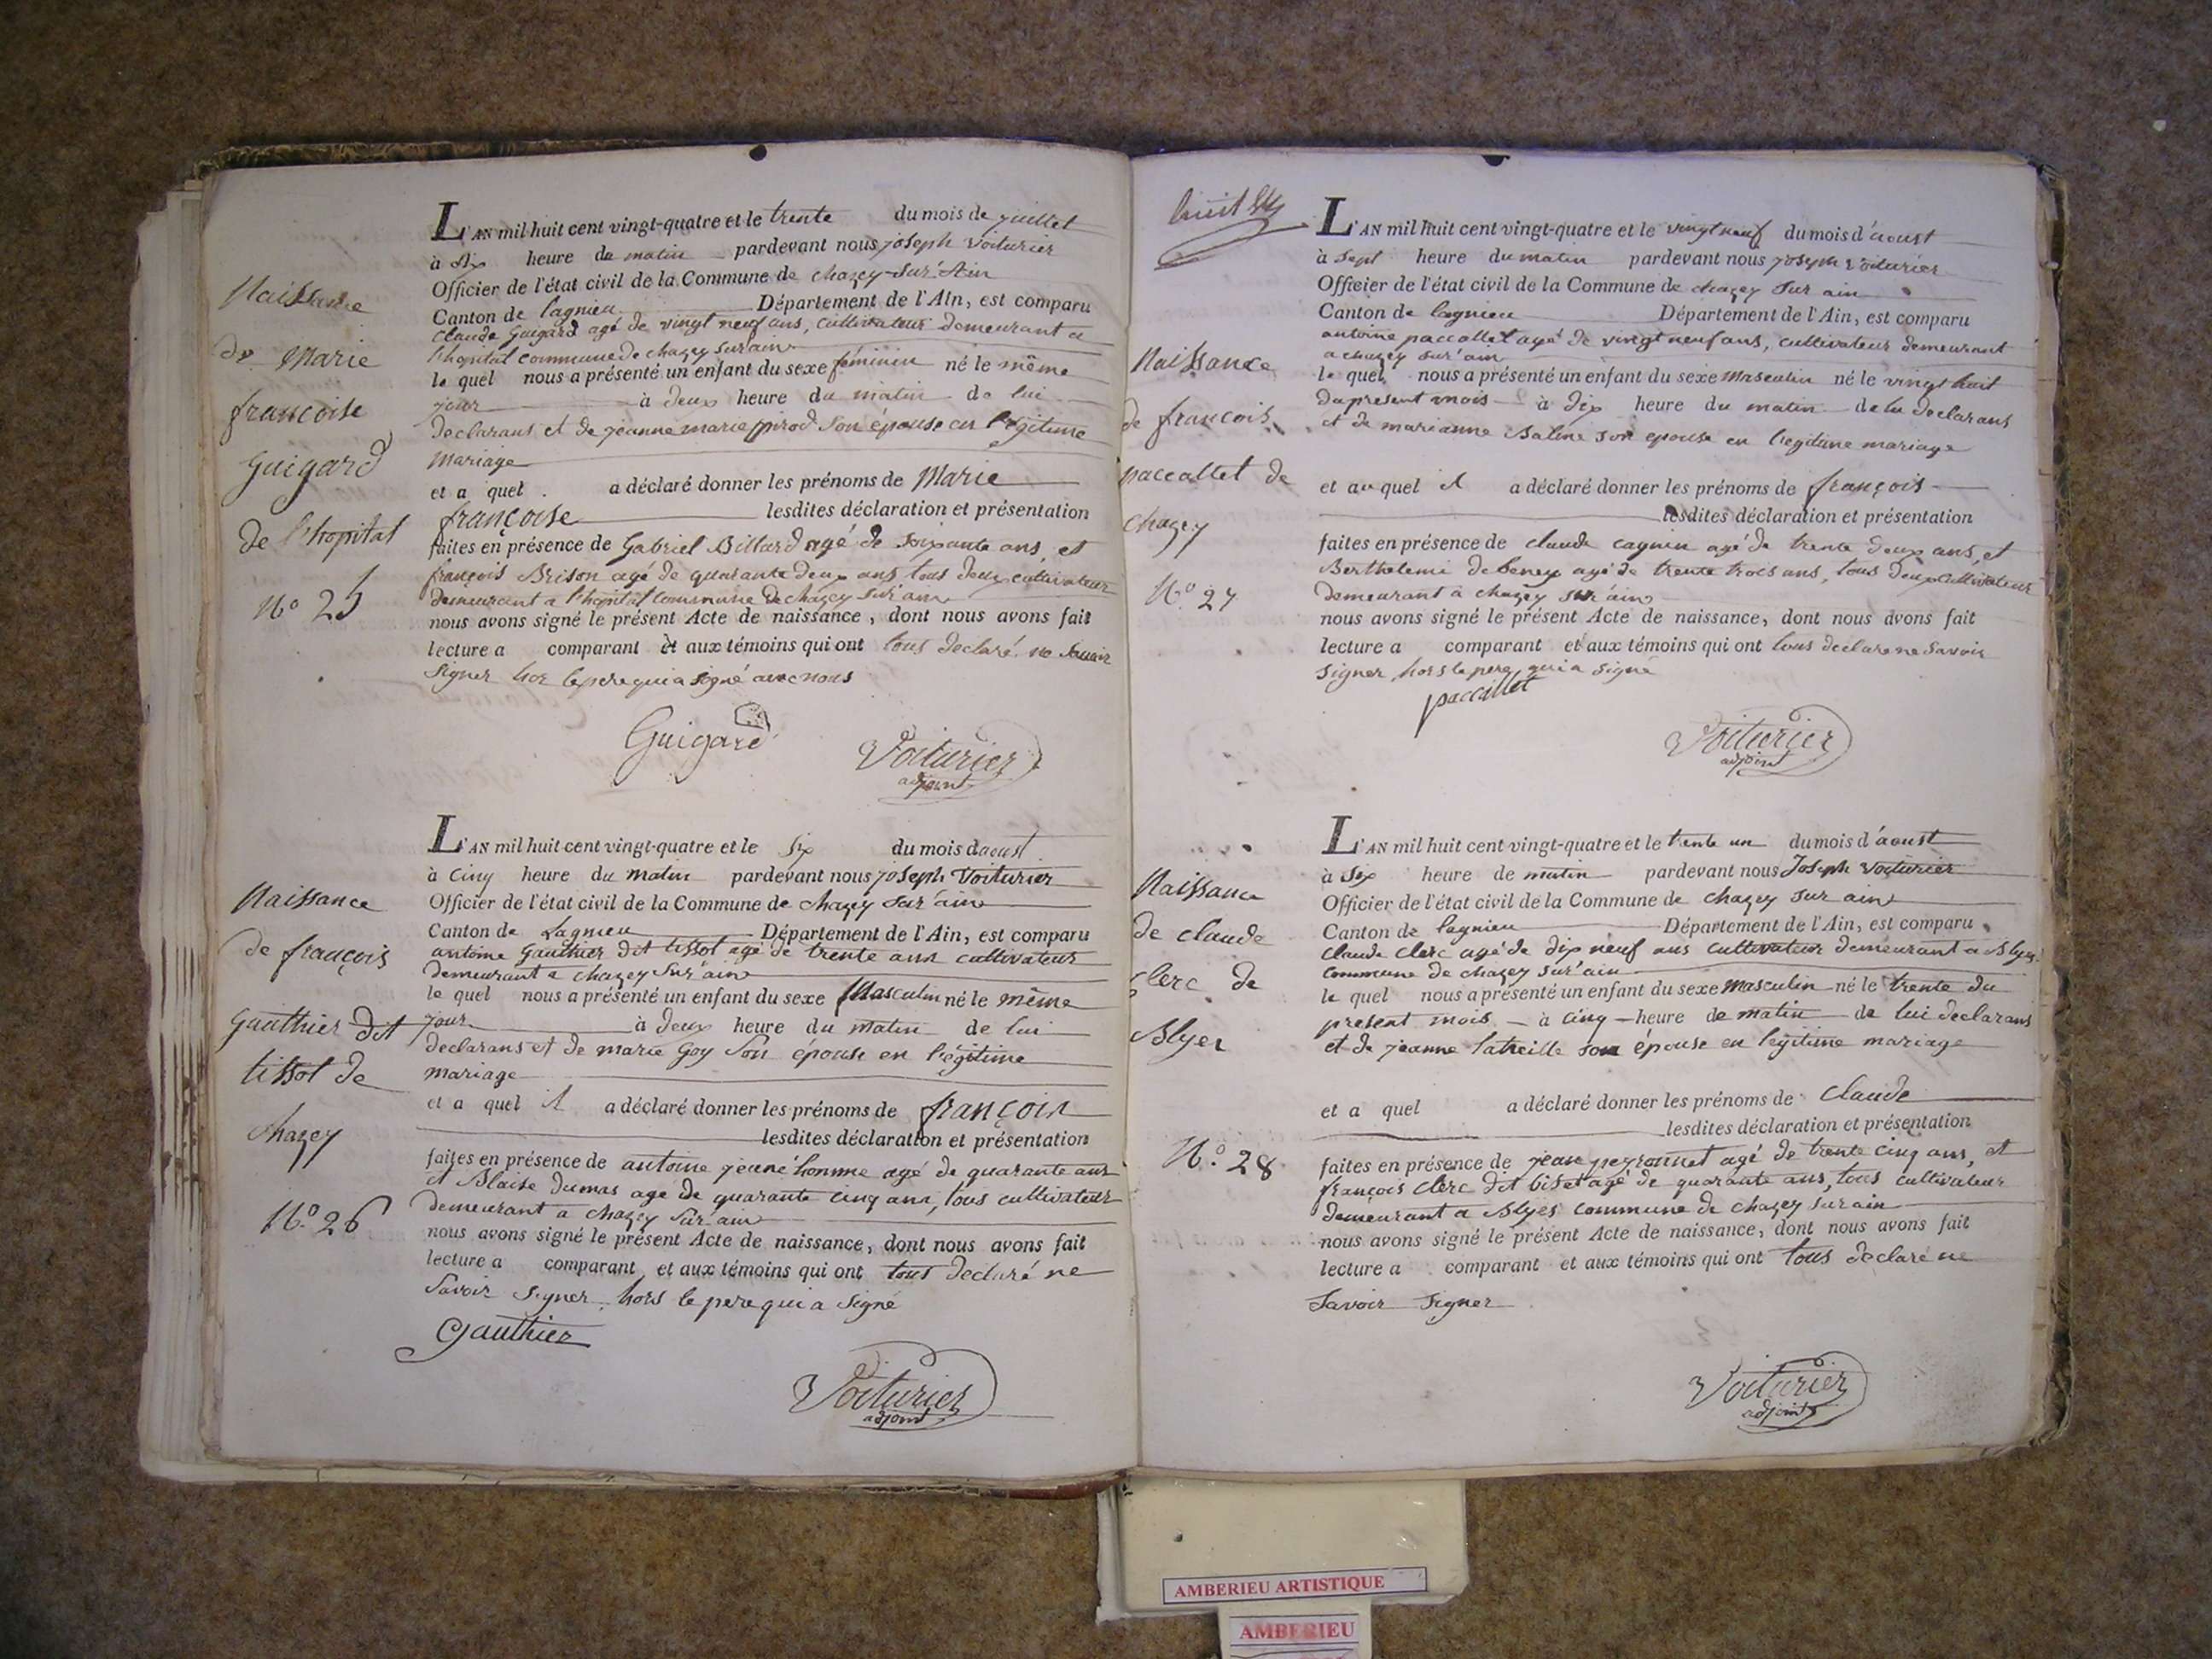 Naissance
de Marie
françoise
Guigard
de l'hopital
N.º 25
L'AN mil huit cent vingt-quatre et le trente du mois de juillet
à six heure de matin pardevant nous joseph Voiturier
Officier de l'état civil de la Commune de chazey-sur-Ain
Canton de lagnieu Département de l'Ain, est comparu
Claude Guigard agé de vingt neuf ans, cultivateur demeurant a
l'hopital commune de chazey sur ain
le quel nous a présenté un enfant du sexe féminin né le même
jour à deux heure du matin de lui
declarans et de jeanne marie son épouse en légitime
mariage
et a quel a déclaré donner les prénoms de Marie
françoise lesdites déclaration et présentation
faites en présence de Gabriel Billard agé de soixante ans, et
françois Brison agé de quarante deux ans, tous deux cultivateur
demeurant a l'hopital Commune de chazey sur ain
nous avons signé le présent Acte de naissance, dont nous avons fait
lecture a comparant et aux témoins qui ont tous declaré ne savoir
signer hor le pere qui a signé avec nous
Guigard
Voiturier
adjoint
Naissance
de françois
Gauthier dit
tissot de
chazey
N.º 26
L'AN mil huit cent vingt-quatre et le six du mois daoust
à cinq heure du matin pardevant nous joseph Voiturier
Officier de l'état civil de la Commune de chazey sur ain
Canton de Lagnieu Département de l'Ain, est comparu
antoine Gauthier dit tissot agé de trente ans cultivateur
demeurant a chazey sur ain
le quel nous a présenté un enfant du sexe Masculin né le même
jour à deux heure du matin de lui
declarans et de marie Goy son épouse en légitime
mariage
et a quel il a déclaré donner les prénoms de françois
lesdites déclaration et présentation
faites en présence de antoine jeune homme agé de quarante ans
et Blaise dumas agé de quarante cinq ans, tous cultivateur
demeurant a chazey sur ain
nous avons signé le présent Acte de naissance, dont nous avons fait
lecture a comparant et aux témoins qui ont tous declaré ne
savoir signer, hors le pere qui a signé
Gauthier
Voiturier
adjoint
huit
Naissance
de françois
paccallet de
chazey
N.º 27
L'AN mil huit cent vingt-quatre et le vingt neuf du mois d'aoust
à sept heure du matin pardevant nous joseph voiturier
Officier de l'état civil de la Commune de chazey sur ain
Canton de lagnieu Département de l'Ain, est comparu
antoine paccallet agé de vingt neuf ans, cultivateur demeurant
a chazey sur ain
le quel nous a présenté un enfant du sexe masculin né le vingt huit
du present mois à dix heure du matin de lui declarans
et de marianne Baline son epouse en legitime mariage
et au quel il a déclaré donner les prénoms de françois
lesdites déclaration et présentation
faites en présence de claude cagnin agé de trente deux ans, et
Berthelemi debeney agé de trente trois ans, tous deux cultivateur
demeurant à chazey sur ain
nous avons signé le présent Acte de naissance, dont nous avons fait
lecture a comparant et aux témoins qui ont tous déclare ne savoir
signer, hors le pere qui a signé
paccallet
Voiturier
adjoint
Naissance
de claude
clerc de
Blyes
N.º 28
L'AN mil huit cent vingt-quatre et le trente un du mois d'aoust
à six heure de matin pardevant nous Joseph voiturier
Officier de l'état civil de la Commune de chazey sur ain
Canton de lagnieu Département de l'Ain, est comparu
claude clerc agé de dix neuf ans cultivateur demeurant a Blyes
commune de chazey sur ain
le quel nous a présenté un enfant du sexe masculin né le trente du
present mois à cinq heure de matin de lui declarans
et de jeanne latreille son épouse en legitime mariage
et a quel a déclaré donner les prénoms de claude
lesdites déclaration et présentation
faites en présence de jean peyronnet agé de trente cinq ans, et
françois clerc dit biset agé de quarante ans, tous cultivateur
demeurant a Blyes commune de chazey sur ain
nous avons signé le présent Acte de naissance, dont nous avons fait
lecture a comparant et aux témoins qui ont tous declaré ne
savoir signer
Voiturier
adjoint
AMBERIEU ARTISTIQUE
AMBERIEU